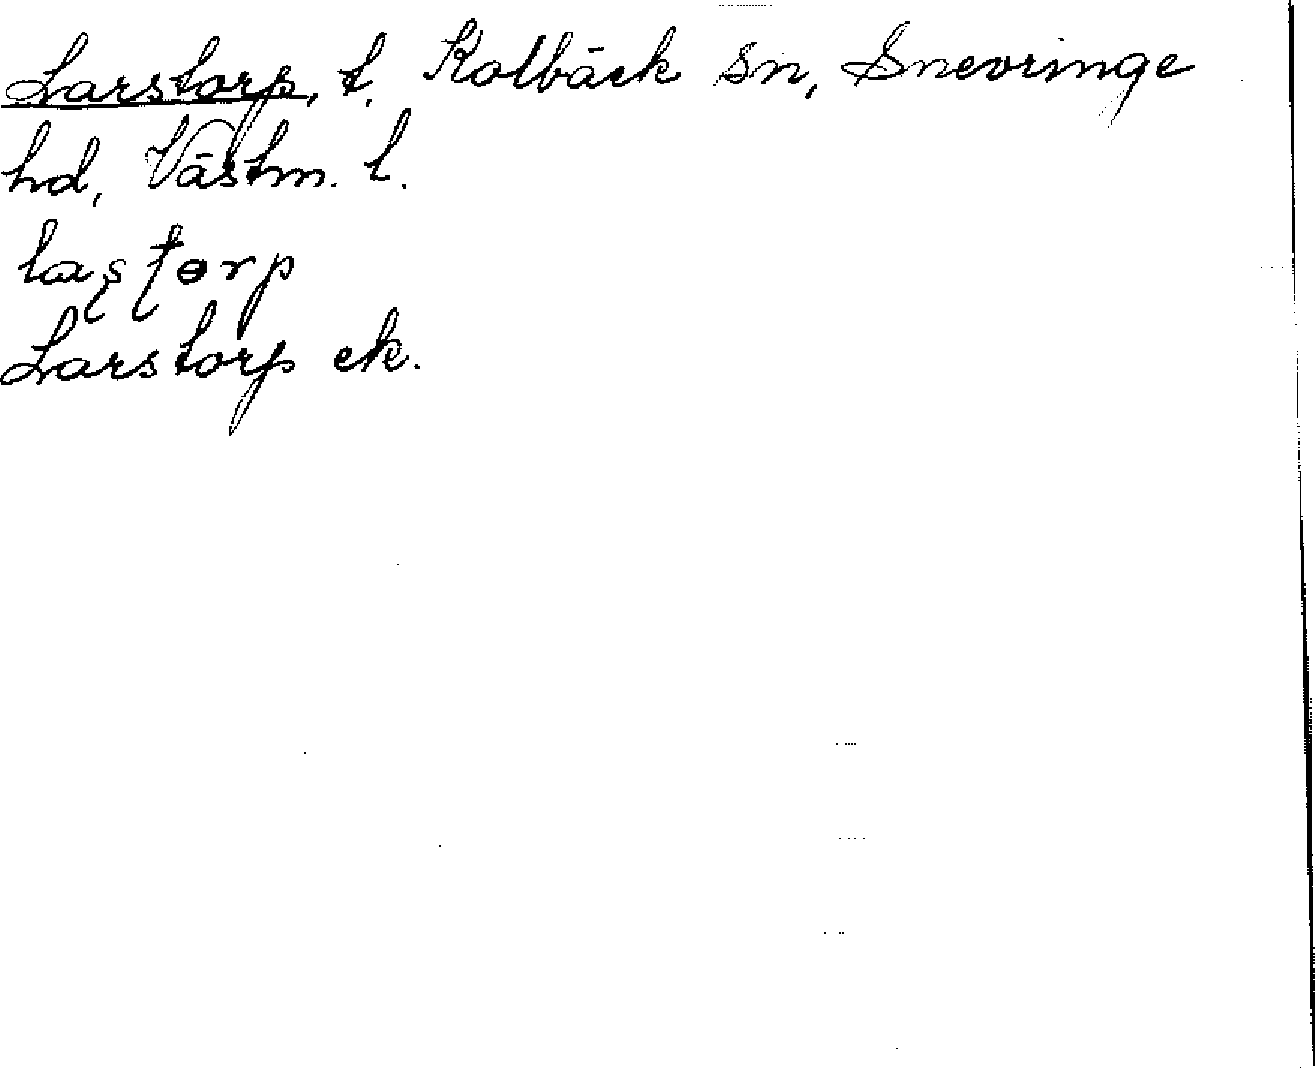 Larstorp, t. Kolbäck sn, Snevringe
hd, Västm. l.
laʂʈɵrp
Larstorp ek.